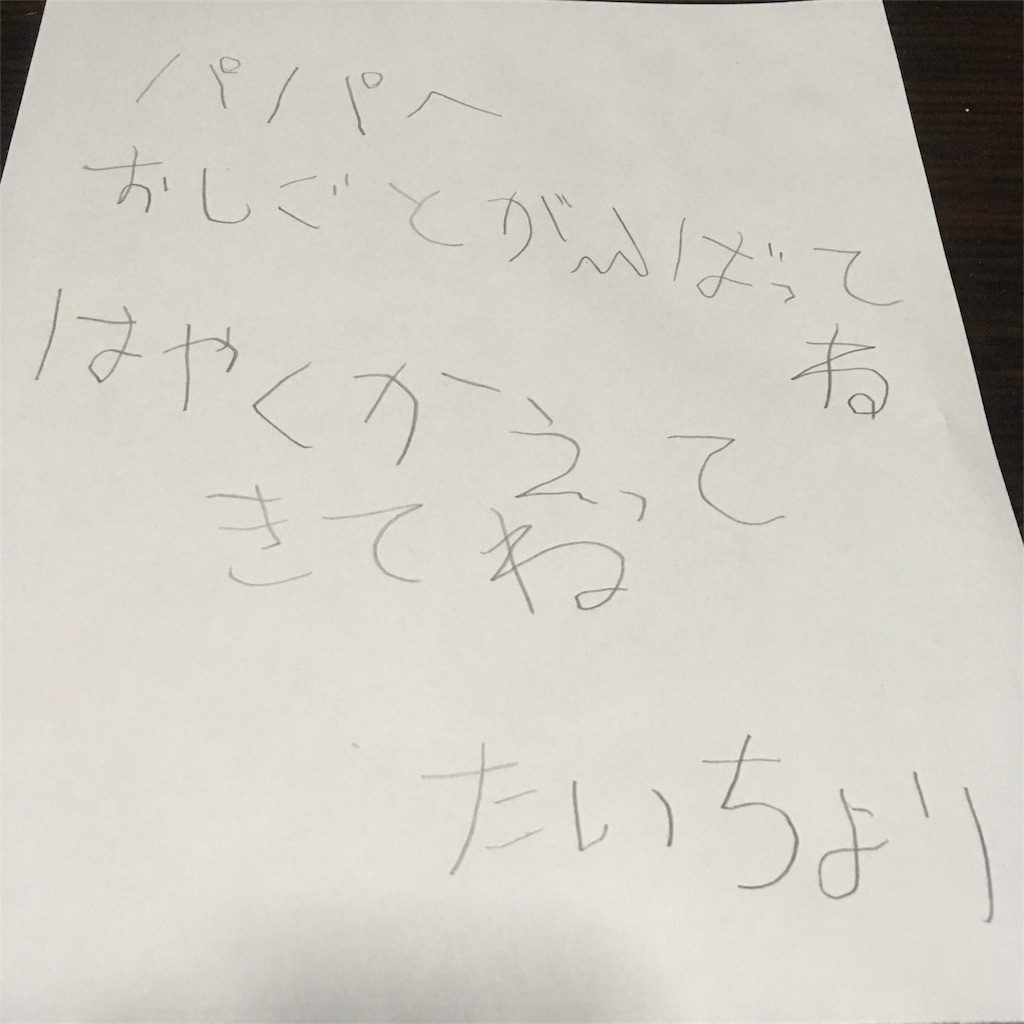 パパへ
おしごとがんばって
ね
はやくかえって
きてね
たいちより